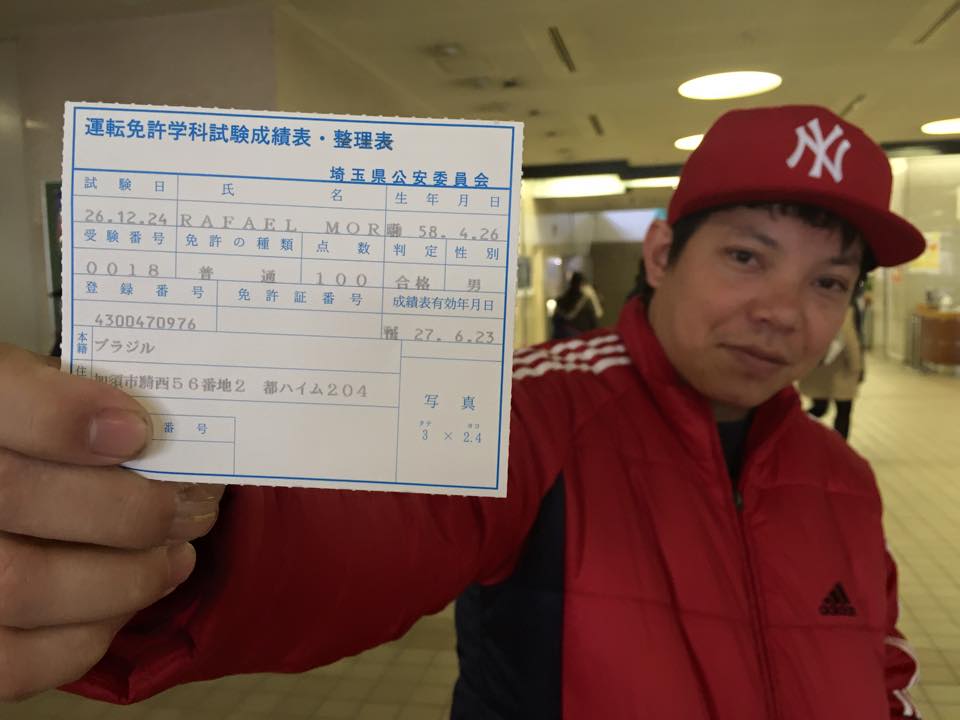 運転免許学科試験成績表・整理表
埼玉県公安委員会
試験日 氏名 生年月日
26.12.24 RAFAEL MOR 58. 4.26
受験番号 免許の種類 点数 判定 性別
0018 普通 100 合格 男
登録番号 免許証番号 成績表有効年月日
4300470976 27. 6.23
本籍 ブラジル
住 加須市騎西56番地2 都ハイム204
写真
タテ ヨコ
3 × 2.4
番号
NY
adidas